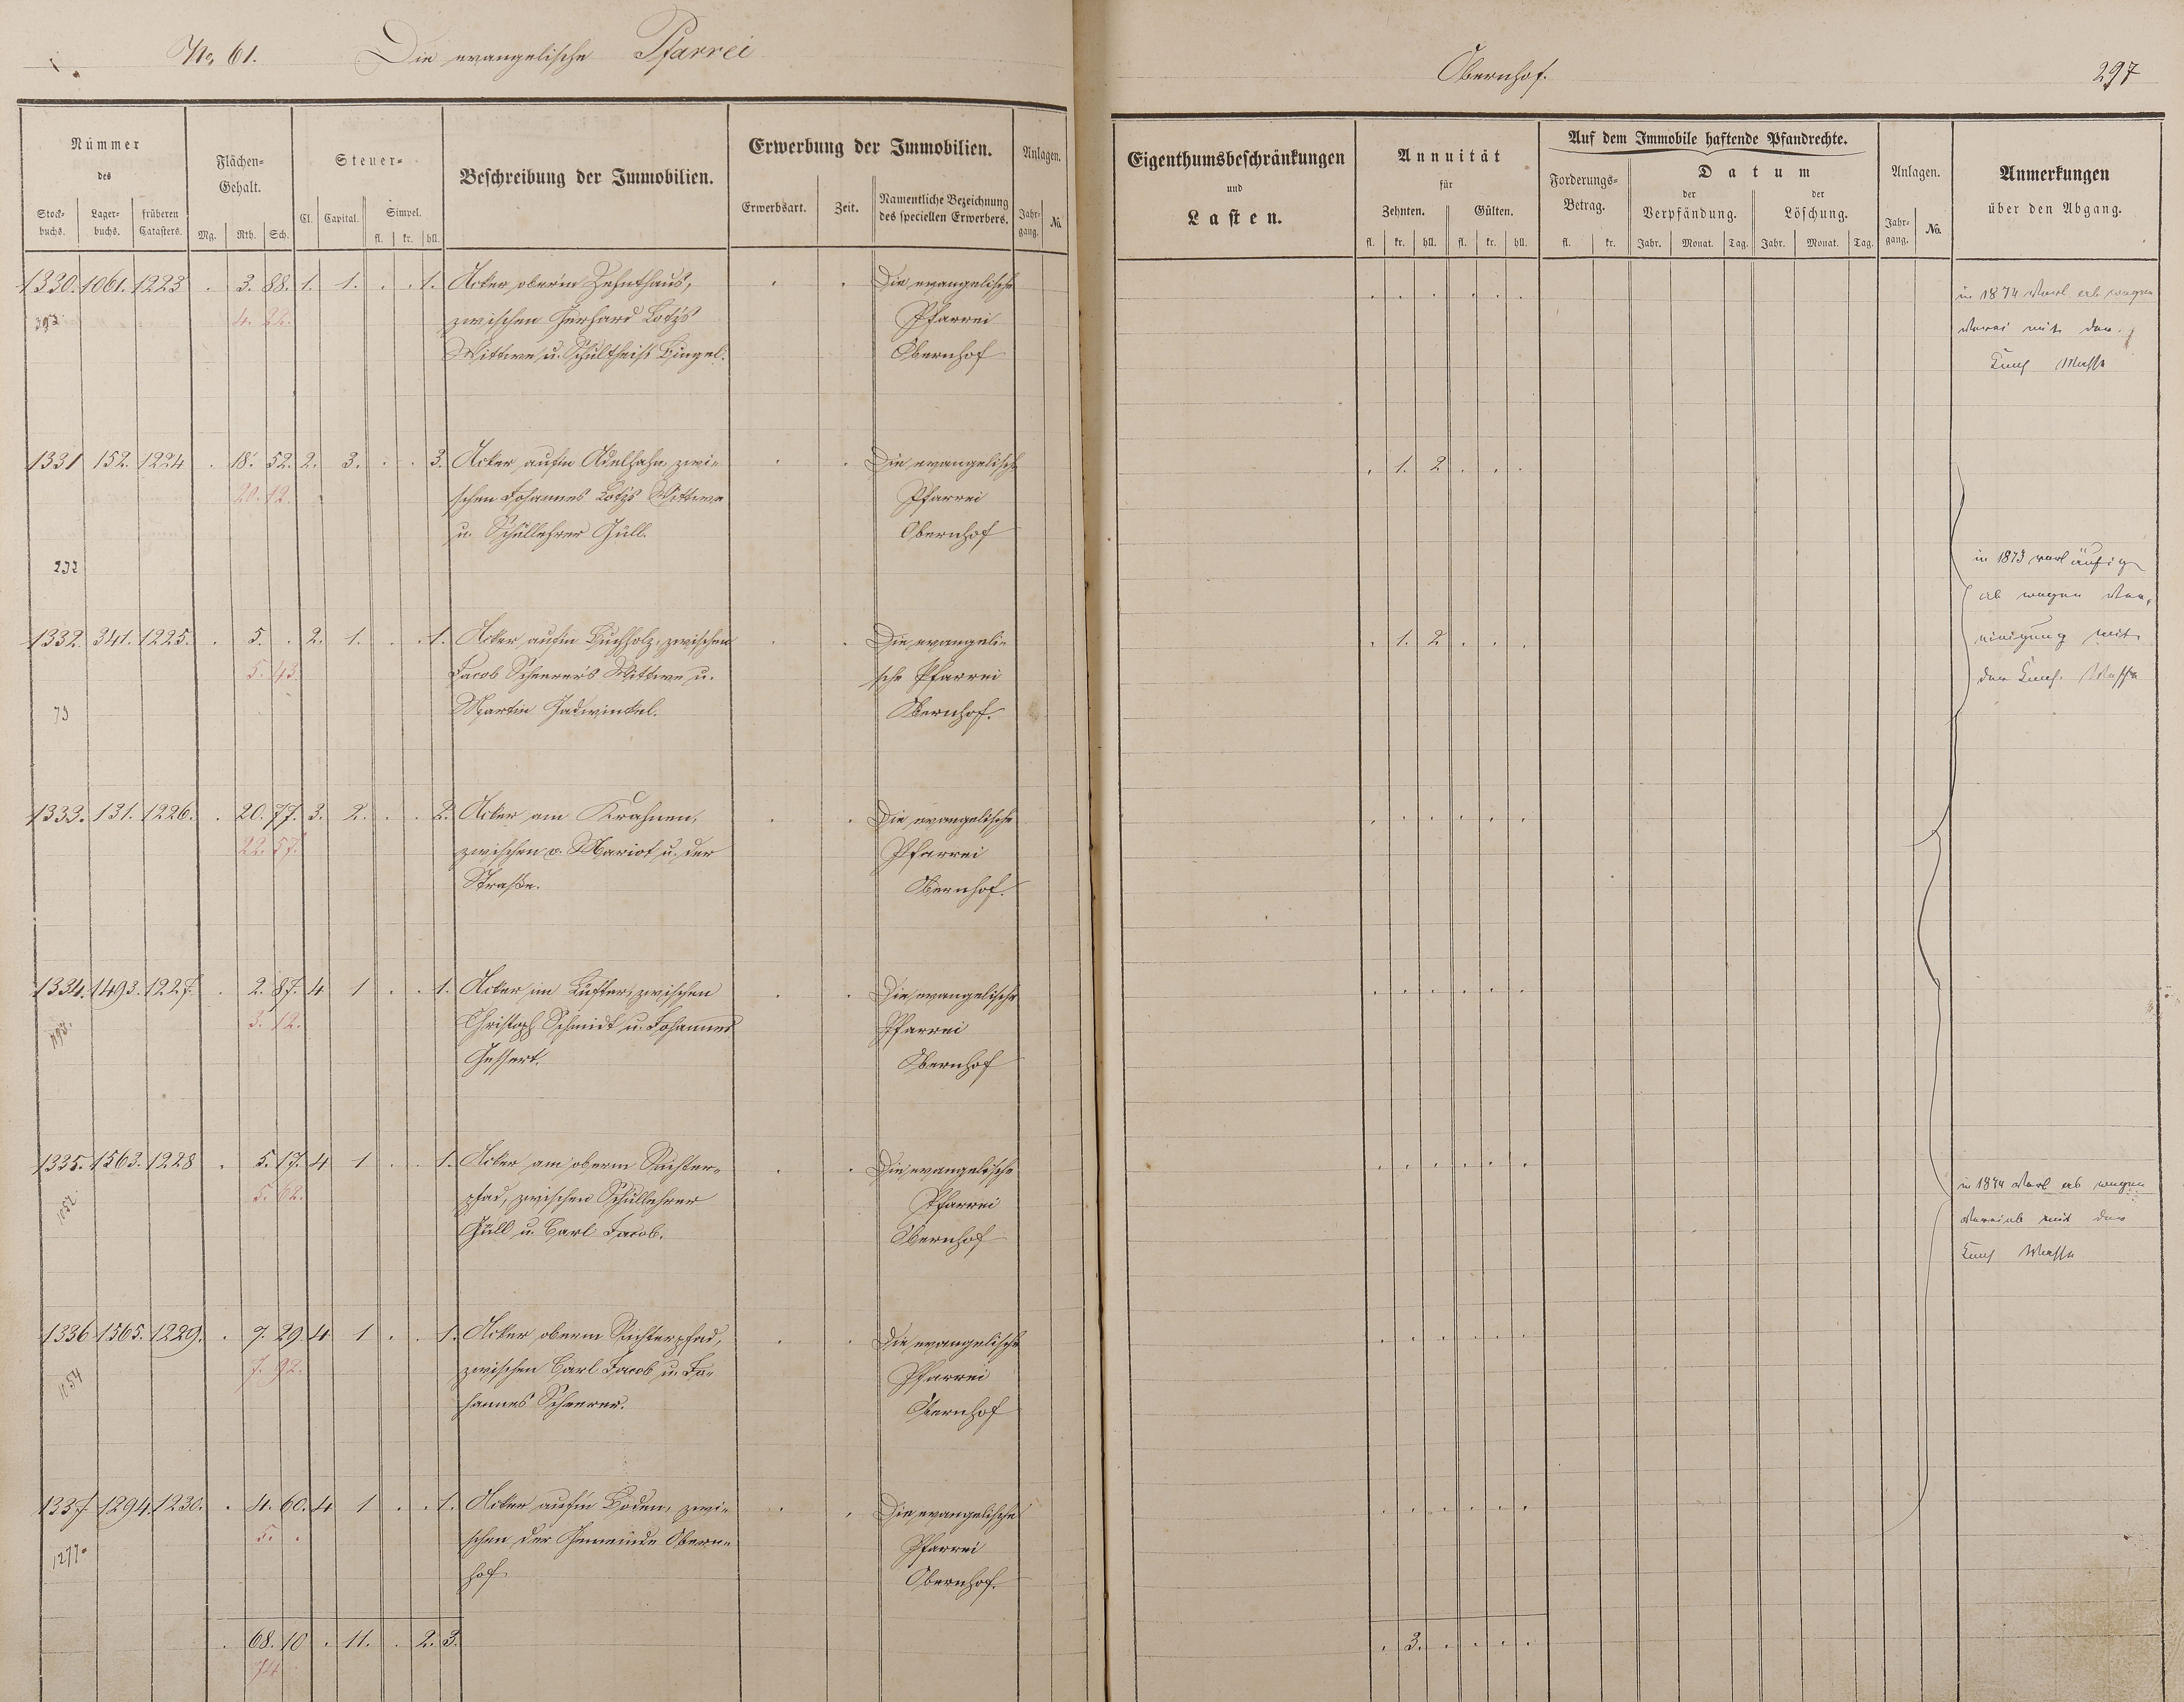 No 61. Die evangelische Pfarrei
Obernhof. 297
Nummer des
Stock-buchs. Lager-buchs. früheren Catasters.
Flächen-Gehalt.
Mg. Rth. Sch.
Steuer-
Cl. Capital. Simpel.
fl. kr. hll.
Beschreibung der Immobilien.
Erwerbung der Immobilien.
Erwerbsart. Zeit. Namentliche Bezeichnung des speciellen Erwerbers.
Anlagen.
Jahr-gang. No.
Eigenthumsbeschränkungen
und
Lasten.
Annuität
für
Zehnten. Gülten.
fl. kr. hll. fl. kr. hll.
Auf dem Immobile haftende Pfandrechte.
Forderungs-Betrag.
fl. kr.
Datum
der Verpfändung. der Löschung.
Jahr. Monat. Tag. Jahr. Monat. Tag.
Anlagen.
Jahr-gang. No.
Anmerkungen
über den Abgang.
1330. 1061. 1223 . 3. 88. 1. 1. . . 1. Acker oberm Zehnthaus, . . Die evangelische
4. 22. zwischen Gerhard Lotz's Pfarrei
Wittwe u. Schultheiß Bingel. Obernhof
in 1874 vorl ab wegen
Verei mit der
Cons Masse
1331 152. 1224 . 18. 52. 2. 3. . . 3. Acker aufm Adelhahn zwi- . . Die evangelische . 1. 2 . . .
20. 12. schen Johannes Lotz's Wittwe Pfarrei
u. Schullehrer Güll. Obernhof
232
in 1873 vorläufig
ab wegen Ver-
einigung mit
der Cons. Masse
1332. 341. 1225. . 5. . 2. 1. . . 1. Acker aufm Buchholz, zwischen . . Die evangeli- . 1. 2 . . .
5. 43. Jacob Scheerer's Wittwe u. sche Pfarrei
73 Martin Hadwinkel. Obernhof.
1333. 131. 1226. . 20. 77. 3. 2. . . 2. Acker am Krahnen, . . Die evangelische
22. 57. zwischen v. Mariot u. der Pfarrei
Straße. Obernhof.
1334. 1493. 1227. . 2. 87. 4 1 . . 1. Acker im Lüfter, zwischen . . Die evangelische
3. 12. Christoph Schmidt u. Johannes Pfarrei
Gessert. Obernhof
1335. 1563. 1228 . 5. 17. 4 1 . . 1. Acker am oberm Richter- . . Die evangelische
5. 62. pfad, zwischen Schullehrer Pfarrei
1052 Güll u. Carl Jacob. Obernhof
in 1874 vorl ab wegen
Vereinb mit der
Cons Masse
1336 1565. 1229. . 7. 29 4 1 . . 1. Acker oberm Richterpfad, . . Die evangelische
7. 92. zwischen Carl Jacob u. Jo- Pfarrei
1054 hannes Scheerer. Obernhof
1337. 1294. 1230. . 4. 60. 4 1 . . 1. Acker aufm Boden, zwi- . . Die evangelische
5. . schen der Gemeinde Obern- Pfarrei
hof Obernhof.
. 68. 10 . 11. . 2. 3. . 3. . . . .
74